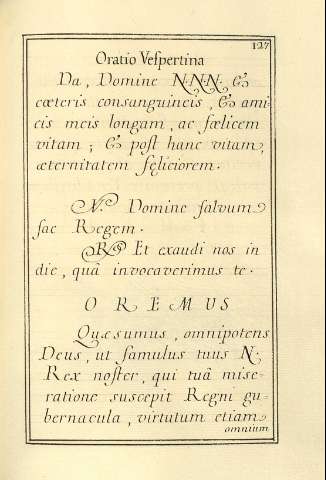 127
Oratio Veſpertina
Da, Domine N.N.N. &
cœteris consanguineis, & ami
cis meis longam, ac fœlicem
vitam; & poſt hanc vitam,
æternitatem fęliciorem.
V. Domine ſalvum
fac Regem.
R. Et exaudi nos in
die, quâ invocaverimus te.
OREMUS
Quæsumus, omnipotens
Deus, ut famulus tuus N.
Rex noſter, qui tuâ mise-
ratione suscepit Regni gu-
bernacula, virtutum etiam
omnium